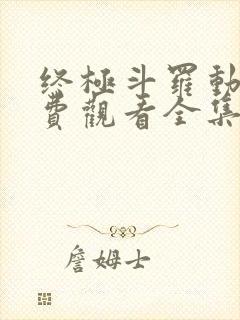 终極斗羅動
費觀看全集
詹姆士